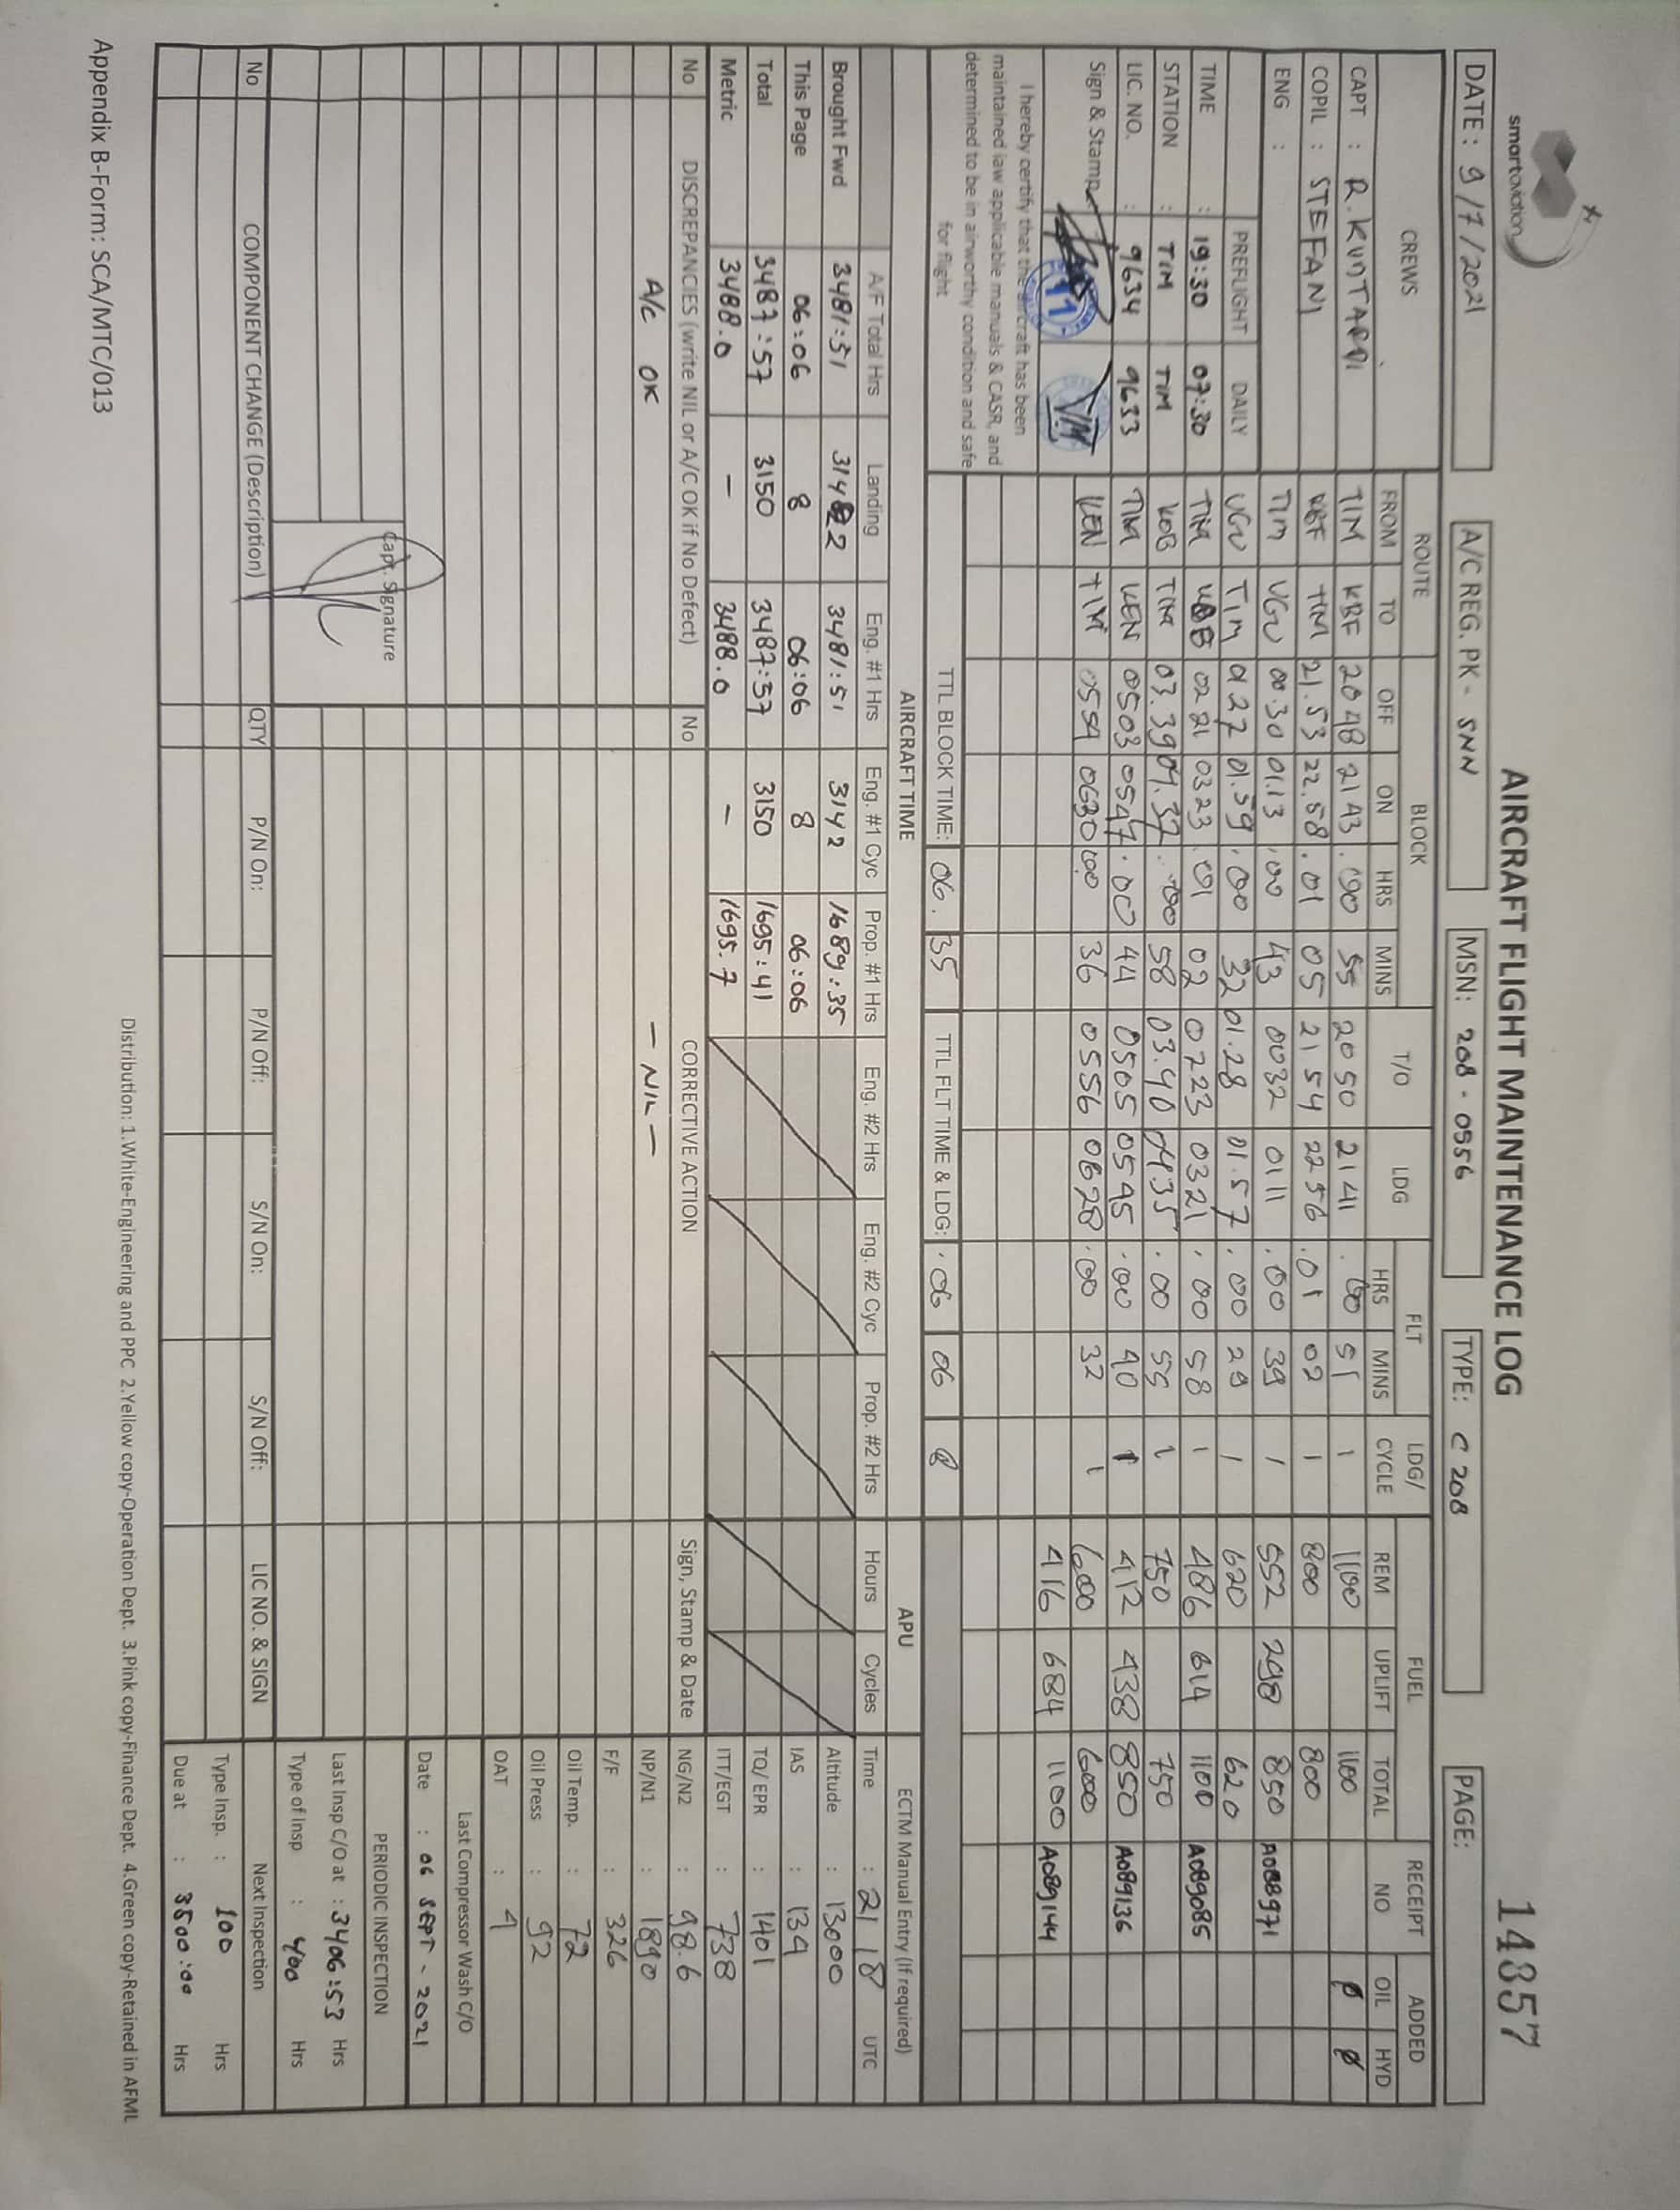 smartaviation
AIRCRAFT FLIGHT MAINTENANCE LOG
14857
DATE : 9/7/2021
A/C REG. PK - SNN
MSN: 208 - 0556
TYPE: C 208
PAGE:
CREWS
ROUTE
BLOCK
T/O
LDG
FLT
LDG/
FUEL
RECEIPT
ADDED
FROM
TO
OFF
ON
HRS
MINS
HRS
MINS
CYCLE
REM
UPLIFT
TOTAL
NO
OIL
HYD
CAPT : R. KUNTARDI
TIM KBF 2048 2143 .00 55 2050 2141 .00 51 1 1100 1100 ø ø
COPIL : STEFANI
KBF TIM 21.53 22.58 .01 05 2154 2256 .01 02 1 800 800
ENG :
TIM UGU 00.30 01.13 .00 43 0032 0111 .00 39 1 552 298 850 A088971
PREFLIGHT DAILY
UGU TIM 01.27 01.59 .00 32 01.28 01.57 .00 29 1 620 620
TIME : 19:30 07:30
TIM 0221 0323 .01 02 0223 0321 .00 58 1 486 614 1100 A089085
STATION : TIM TIM
KOB TIM 03.39 04.37 .00 58 03.40 0435 .00 55 1 750 750
LIC. NO. : 9634 9633
TIM KEN 0503 0547 .00 44 0505 0545 .00 40 1 412 438 850 A089136
Sign & Stamp
KEN TIM 0554 0630 .00 36 0556 0628 .00 32 1 600 600
416 684 1100 A089144
I hereby certify that the aircraft has been
maintained iaw applicable manuals & CASR, and
determined to be in airworthy condition and safe
for flight
TTL BLOCK TIME: 06. 35
TTL FLT TIME & LDG: .06 06 8
AIRCRAFT TIME
APU
ECTM Manual Entry (If required)
A/F Total Hrs
Landing
Eng. #1 Hrs
Eng. #1 Cyc
Prop. #1 Hrs
Eng. #2 Hrs
Eng. #2 Cyc
Prop. #2 Hrs
Hours
Cycles
Time : 21 18 UTC
Brought Fwd 3481:51 3142 3481:51 3142 1689:35
Altitude : 13000
This Page 06:06 8 06:06 8 06:06
IAS : 134
Total 3487:57 3150 3487:57 3150 1695:41
TQ/ EPR : 1401
Metric 3488.0 - 3488.0 - 1695.7
ITT/EGT : 738
No
DISCREPANCIES (write NIL or A/C OK if No Defect)
No
CORRECTIVE ACTION
Sign, Stamp & Date
NG/N2 : 98.6
A/C OK
- NIL -
NP/N1 : 1890
F/F : 326
Oil Temp. : 72
Oil Press : 92
OAT : 4
Last Compressor Wash C/O
Date : 06 SEPT - 2021
Capt. Signature
PERIODIC INSPECTION
Last Insp C/O at : 3406:53 Hrs
Type of Insp : 400 Hrs
No
COMPONENT CHANGE (Description)
QTY
P/N On:
P/N Off:
S/N On:
S/N Off:
LIC NO. & SIGN
Next Inspection
Type Insp. : 100 Hrs
Due at : 3500:00 Hrs
Distribution: 1.White-Engineering and PPC 2.Yellow copy-Operation Dept. 3.Pink copy-Finance Dept. 4.Green copy-Retained in AFML
Appendix B-Form: SCA/MTC/013